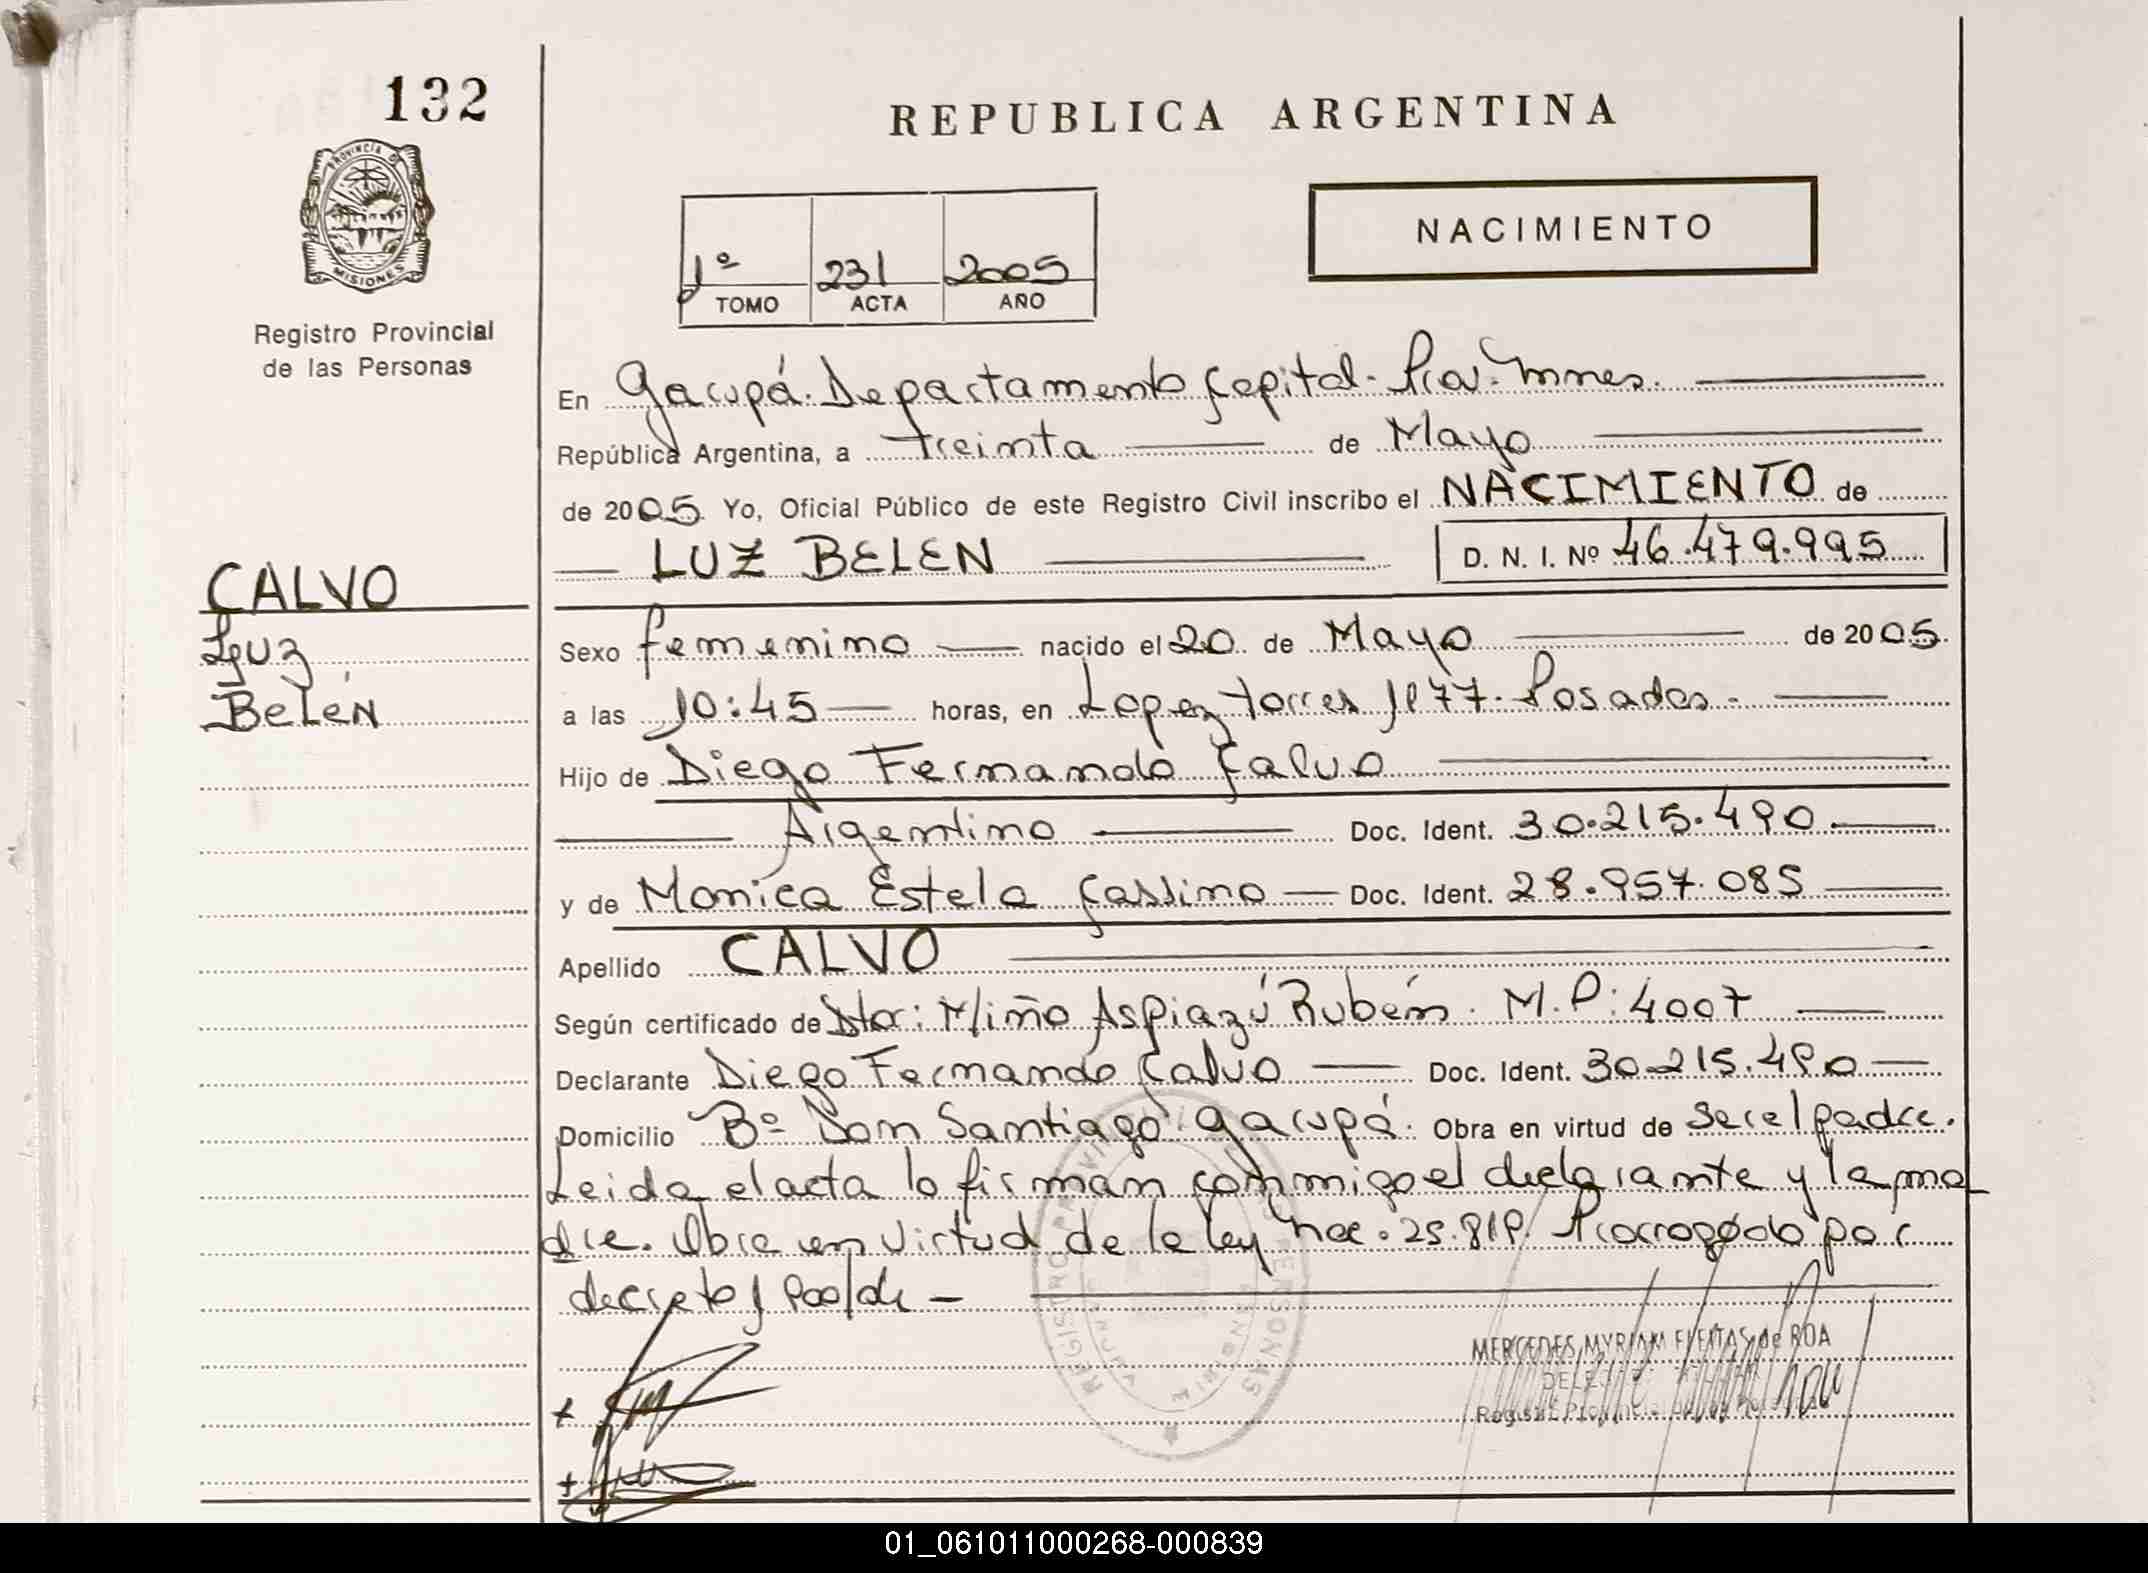 132
REPUBLICA ARGENTINA
PROVINCIA DE MISIONES
NACIMIENTO
1º 231 2005
TOMO ACTA AÑO
Registro Provincial
de las Personas
En Garupá. Departamento Capital. Prov. Mnes.
República Argentina, a treinta de Mayo
de 2005 Yo, Oficial Público de este Registro Civil inscribo el NACIMIENTO de
LUZ BELEN D. N. I. Nº 46.479.995
CALVO
Luz
Belén
Sexo femenino nacido el 20 de Mayo de 2005
a las 10:45 horas, en Lopez Torres 1177. Posadas.
Hijo de Diego Fernando Calvo
Argentino Doc. Ident. 30.215.490
y de Monica Estela Cassino Doc. Ident. 28.957.085
Apellido CALVO
Según certificado de Dtor: Miño Aspiazú Rubén. M.P: 4007
Declarante Diego Fernando Calvo Doc. Ident. 30.215.490
Domicilio Bº Don Santiago Garupá. Obra en virtud de ser el padre.
Leida el acta la firman conmigo el declarante y la ma
dre. Obra en virtud de la ley Nac. 25.819. Prorrogado por
decreto
MERCEDES MYRIAM FLEITAS de ROA
REGISTRO PROVINCIAL PERSONAS
01_061011000268-000839